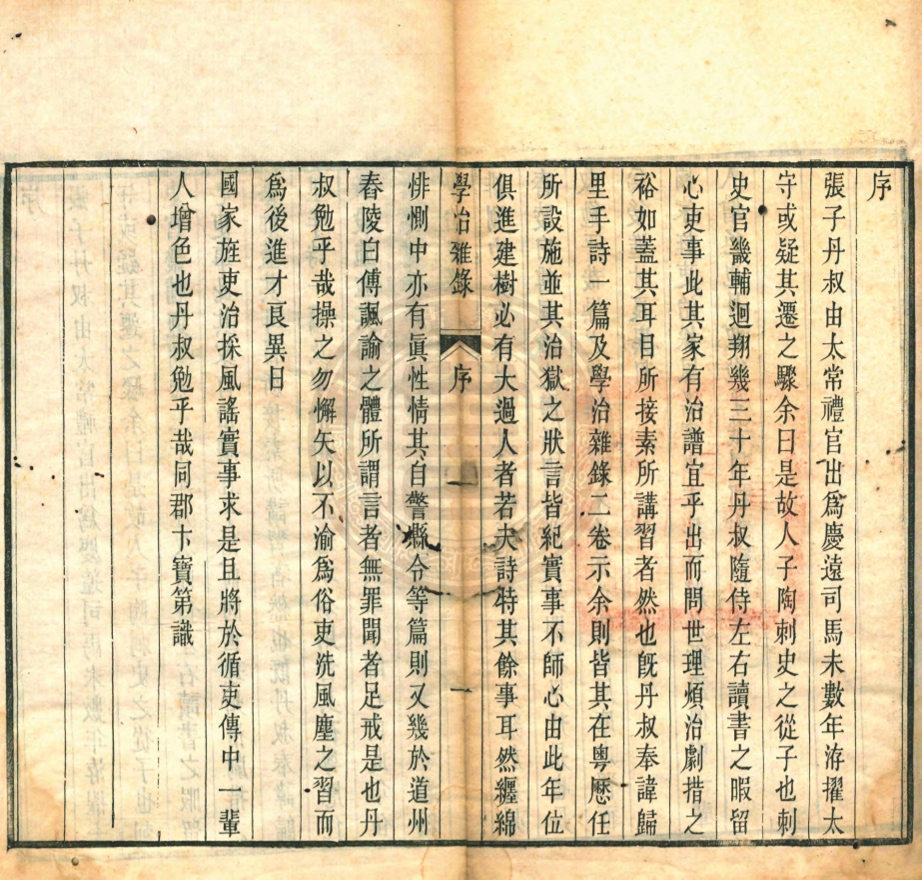 序
張子丹叔由太常禮官出爲慶遠司馬未數年洊擢太
守或疑其遷之驟余曰是故人子陶刺史之從子也刺
史官畿輔迴翔幾三十年丹叔隨侍左右讀書之暇留
心吏事此其家有治譜宜乎出而問世理煩治劇措之
裕如蓋其耳目所接素所講習者然也旣丹叔奉諱歸
里手詩一篇及學治雜錄二卷示余則皆其在粵歷任
所設施並其治獄之狀言皆紀實事不師心由此年位
俱進建樹必有大過人者若夫詩特其餘事耳然纏綿
學治雜錄 序 一
悱惻中亦有眞性情其自警縣令等篇則又幾於道州
舂陵白傅諷諭之體所謂言者無罪聞者足戒是也丹
叔勉乎哉操之勿懈矢以不渝爲俗吏洗風塵之習而
爲後進才良異日
國家旌吏治採風謠實事求是且將於循吏傳中一輩
人增色也丹叔勉乎哉同郡卞寶第識